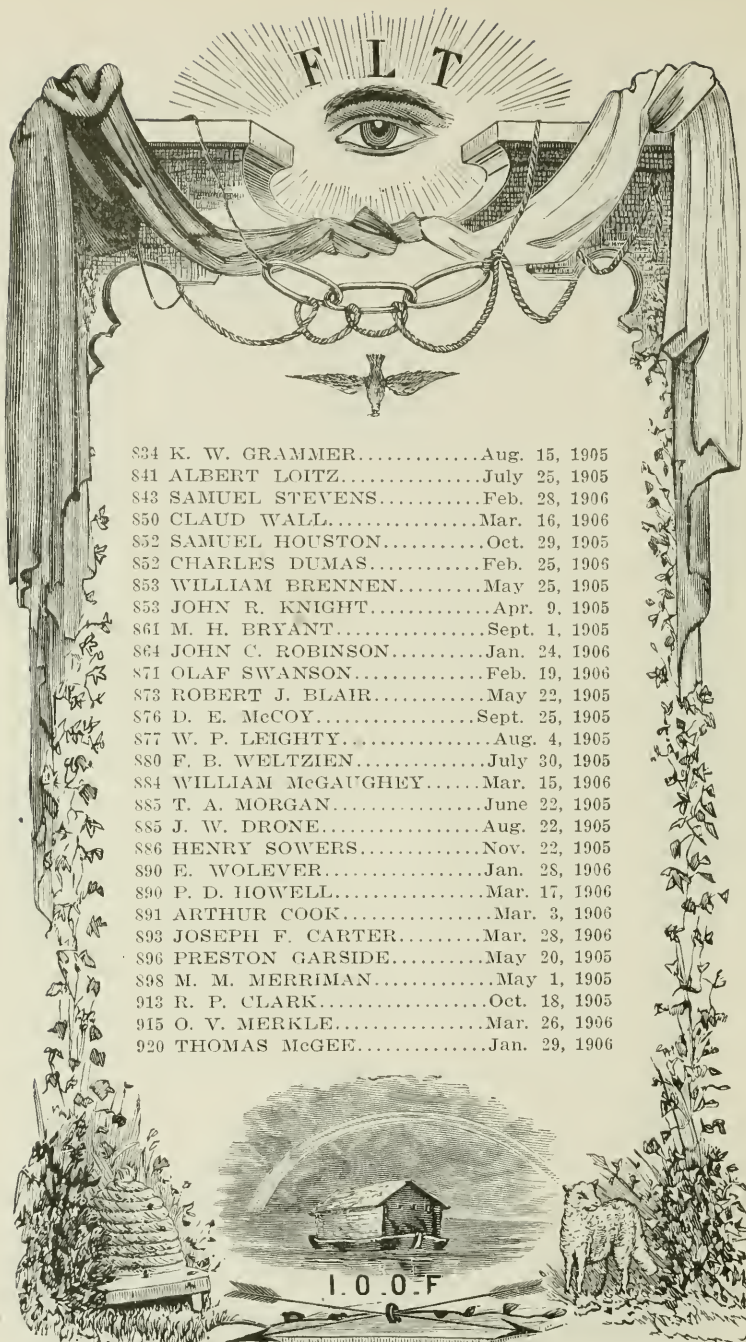 F L T
834 K. W. GRAMMER.............Aug. 15, 1905
841 ALBERT LOITZ...............July 25, 1905
843 SAMUEL STEVENS..........Feb. 28, 1906
850 CLAUD WALL................Mar. 16, 1906
852 SAMUEL HOUSTON..........Oct. 29, 1905
852 CHARLES DUMAS...........Feb. 25, 1906
853 WILLIAM BRENNEN.........May 25, 1905
853 JOHN R. KNIGHT.............Apr. 9, 1905
861 M. H. BRYANT................Sept. 1, 1905
864 JOHN C. ROBINSON.........Jan. 24, 1906
871 OLAF SWANSON.............Feb. 19, 1906
873 ROBERT J. BLAIR............May 22, 1905
876 D. E. McCOY.................Sept. 25, 1905
877 W. P. LEIGHTY................Aug. 4, 1905
880 F. B. WELTZIEN.............July 30, 1905
884 WILLIAM McGAUGHEY......Mar. 15, 1906
885 T. A. MORGAN...............June 22, 1905
885 J. W. DRONE.................Aug. 22, 1905
886 HENRY SOWERS............Nov. 22, 1905
890 E. WOLEVER.................Jan. 28, 1906
890 P. D. HOWELL...............Mar. 17, 1906
891 ARTHUR COOK................Mar. 3, 1906
893 JOSEPH F. CARTER.........Mar. 28, 1906
896 PRESTON GARSIDE..........May 20, 1905
898 M. M. MERRIMAN.............May 1, 1905
913 R. P. CLARK..................Oct. 18, 1905
915 O. V. MERKLE...............Mar. 26, 1906
920 THOMAS McGEE..............Jan. 29, 1906
I.O.O.F